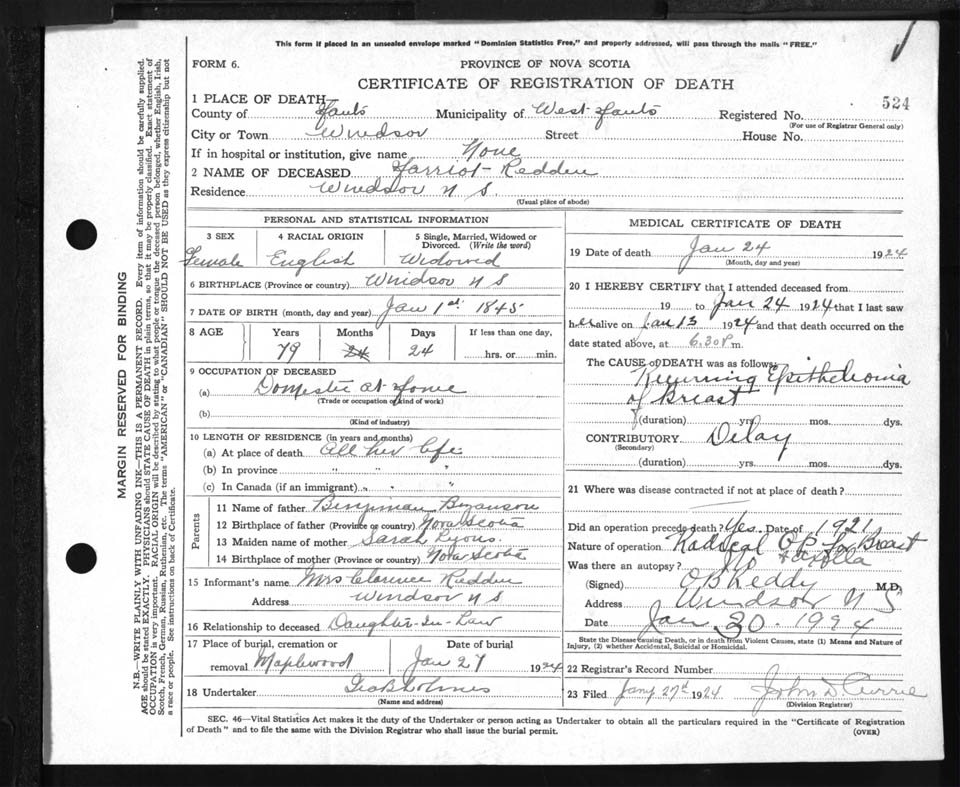 This form if placed in an unsealed envelope marked "Dominion Statistics Free," and properly addressed, will pass through the mails "FREE."
FORM 6.
PROVINCE OF NOVA SCOTIA
CERTIFICATE OF REGISTRATION OF DEATH
524
1 PLACE OF DEATH—
County of Hants Municipality of West Hants Registered No.
(For use of Registrar General only)
City or Town Windsor Street House No.
If in hospital or institution, give name None
2 NAME OF DECEASED Harriot Redden
Residence Windsor N S
(Usual place of abode)
PERSONAL AND STATISTICAL INFORMATION
3 SEX 4 RACIAL ORIGIN 5 Single, Married, Widowed or Divorced. (Write the word)
Female English Widowed
6 BIRTHPLACE (Province or country) Windsor N S
7 DATE OF BIRTH (month, day and year) Jan 1st 1845
8 AGE Years Months Days If less than one day,
79 24 24 hrs. or min.
9 OCCUPATION OF DECEASED
(a) Domestic at Home
(Trade or occupation or kind of work)
(b)
(Kind of industry)
10 LENGTH OF RESIDENCE (in years and months)
(a) At place of death All her life
(b) In province " " "
(c) In Canada (if an immigrant) " " "
Parents
11 Name of father Benjiman Bezanson
12 Birthplace of father (Province or country) Nova Scotia
13 Maiden name of mother Sarah Lyons
14 Birthplace of mother (Province or country) Nova Scotia
15 Informant's name Mrs Clarence Redden
Address Windsor N S
16 Relationship to deceased Daughter-In-Law
17 Place of burial, cremation or removal Maplewood
Date of burial
Jan 27 1924
18 Undertaker Geo Holmes
(Name and address)
MEDICAL CERTIFICATE OF DEATH
19 Date of death Jan 24 1924
(Month, day and year)
20 I HEREBY CERTIFY that I attended deceased from
19 to Jan 24 1924 that I last saw
her alive on Jan 13 1924 and that death occurred on the
date stated above, at 6.30 P m.
The CAUSE of DEATH was as follows:
Recurring Epithelioma
of Breast
(duration) yrs. mos. dys.
CONTRIBUTORY Delay
(Secondary)
(duration) yrs. mos. dys.
21 Where was disease contracted if not at place of death?
Did an operation precede death? Yes. Date of 1921
Nature of operation Radical Op L Breast
& axilla
Was there an autopsy? No
(Signed) O B Keddy M.D.
Address Windsor N S
Date Jan 30. 1924
State the Disease Causing Death, or in death from Violent Causes, state (1) Means and Nature of
Injury, (2) whether Accidental, Suicidal or Homicidal.
22 Registrar's Record Number
23 Filed Jany 27th 1924 John D Currie
(Division Registrar)
SEC. 46—Vital Statistics Act makes it the duty of the Undertaker or person acting as Undertaker to obtain all the particulars required in the "Certificate of Registration
of Death" and to file the same with the Division Registrar who shall issue the burial permit.
(OVER)
MARGIN RESERVED FOR BINDING
N.B.—WRITE PLAINLY WITH UNFADING INK—THIS IS A PERMANENT RECORD. Every item of information should be carefully supplied.
AGE should be stated EXACTLY. PHYSICIANS should STATE CAUSE OF DEATH in plain terms, so that it may be properly classified. Exact statement of
OCCUPATION is very important. RACIAL ORIGIN will be described by stating to what people or tongue the deceased person belonged, whether English, Irish,
Scotch, French, German, Russian, Ruthenian, etc. The terms "AMERICAN" or "CANADIAN" SHOULD NOT BE USED as they express citizenship but not
a race or people. See instructions on back of Certificate.